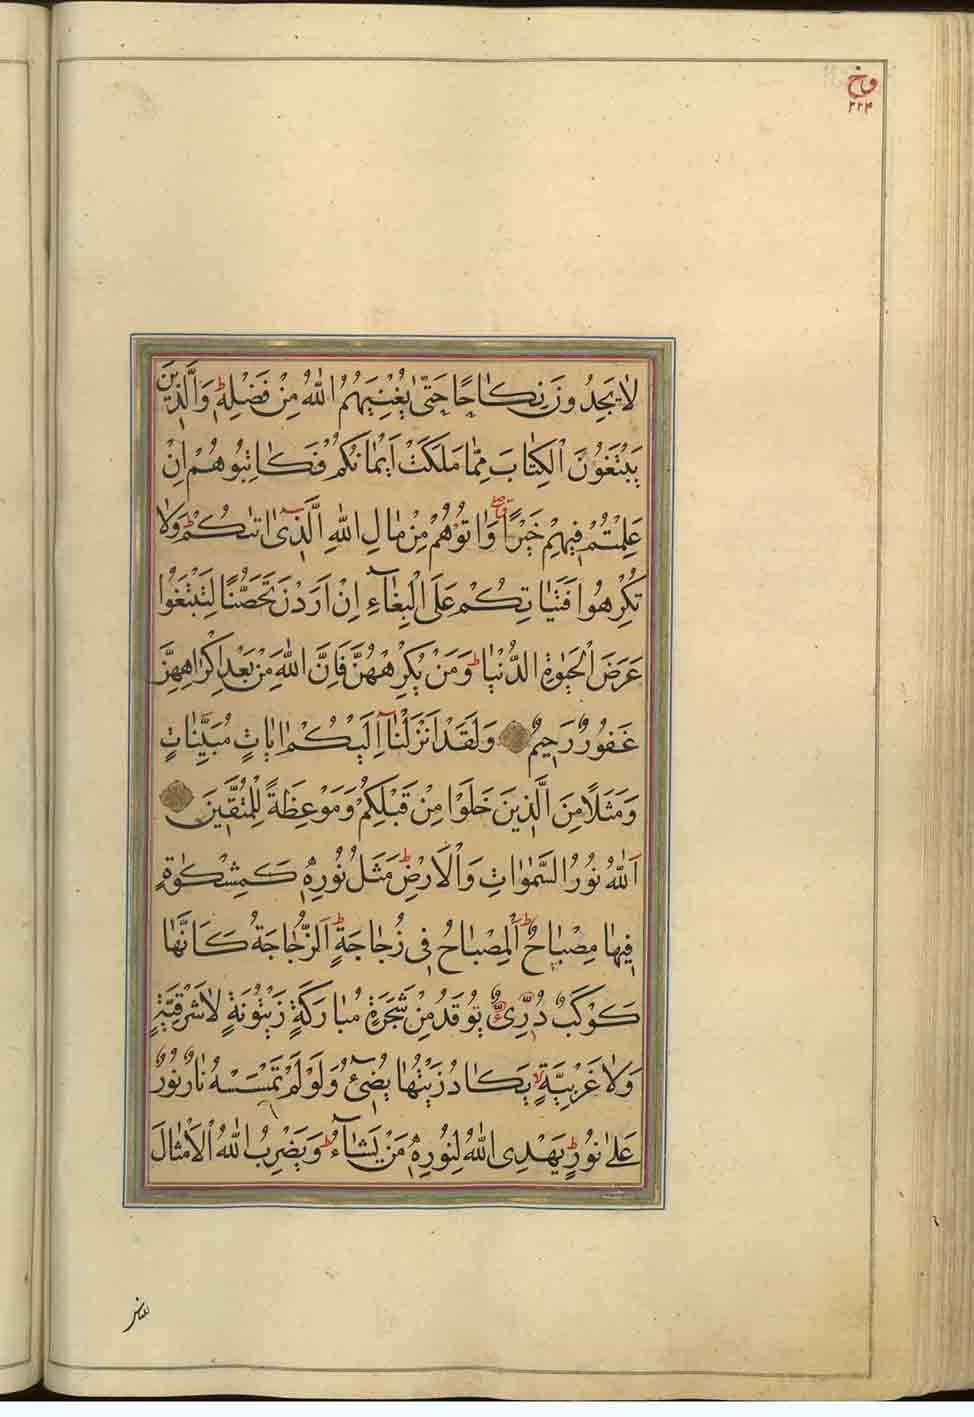 لَا يَجِدُونَ نِكَاحًا حَتّٰى يُغْنِيَهُمُ اللّٰهُ مِنْ فَضْلِهٖ ط وَالَّذِينَ
يَبْتَغُونَ الْكِتَابَ مِمَّا مَلَكَتْ اَيْمَانُكُمْ فَكَاتِبُوهُمْ اِنْ
عَلِمْتُمْ فِيهِمْ خَيْرًا وَاٰتُوهُمْ مِنْ مَالِ اللّٰهِ الَّذِى اٰتٰىكُمْ ط وَلَا
تُكْرِهُوا فَتَيَاتِكُمْ عَلَى الْبِغَآءِ اِنْ اَرَدْنَ تَحَصُّنًا لِتَبْتَغُوا
عَرَضَ الْحَيٰوةِ الدُّنْيَا ط وَمَنْ يُكْرِهْهُنَّ فَاِنَّ اللّٰهَ مِنْ بَعْدِ اِكْرَاهِهِنَّ
غَفُورٌ رَحِيمٌ وَلَقَدْ اَنْزَلْنَآ اِلَيْكُمْ اٰيَاتٍ مُبَيِّنَاتٍ
وَمَثَلًا مِنَ الَّذِينَ خَلَوْا مِنْ قَبْلِكُمْ وَمَوْعِظَةً لِلْمُتَّقِينَ
اَللّٰهُ نُورُ السَّمٰوَاتِ وَالْاَرْضِ ط مَثَلُ نُورِهٖ كَمِشْكٰوةٍ
فِيهَا مِصْبَاحٌ ط اَلْمِصْبَاحُ فِى زُجَاجَةٍ ط اَلزُّجَاجَةُ كَاَنَّهَا
كَوْكَبٌ دُرِّىٌّ يُوقَدُ مِنْ شَجَرَةٍ مُبَارَكَةٍ زَيْتُونَةٍ لَا شَرْقِيَّةٍ
وَلَا غَرْبِيَّةٍ لا يَكَادُ زَيْتُهَا يُضِىٓءُ وَلَوْ لَمْ تَمْسَسْهُ نَارٌ نُورٌ
عَلٰى نُورٍ ط يَهْدِى اللّٰهُ لِنُورِهٖ مَنْ يَشَآءُ ط وَيَضْرِبُ اللّٰهُ الْاَمْثَالَ
للناس